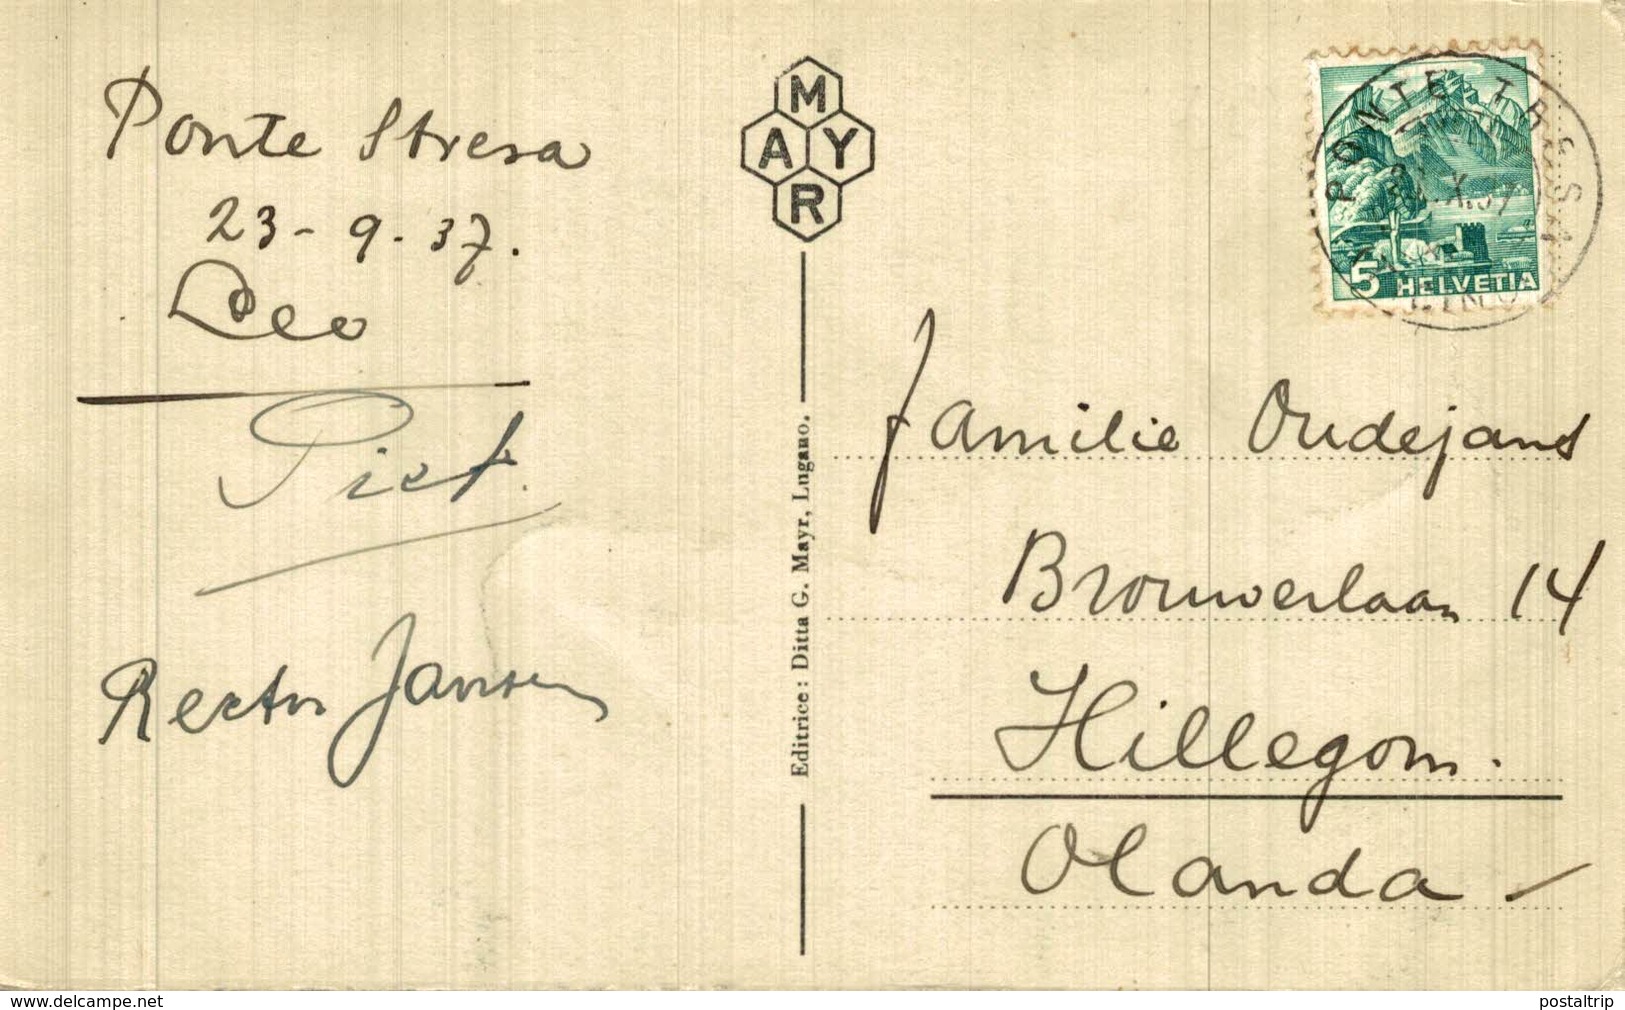 Ponte Stresa
23-9-37.
Leo
Piet.
Rector Jansen
M
A Y
R
Editrice: Ditta G. Mayr, Lugano.
PONTE TRESA
X.37
5 HELVETIA
Familie Oudejans
Brouwerlaan 14
Hillegom.
Olanda -
www.delcampe.net
postaltrip